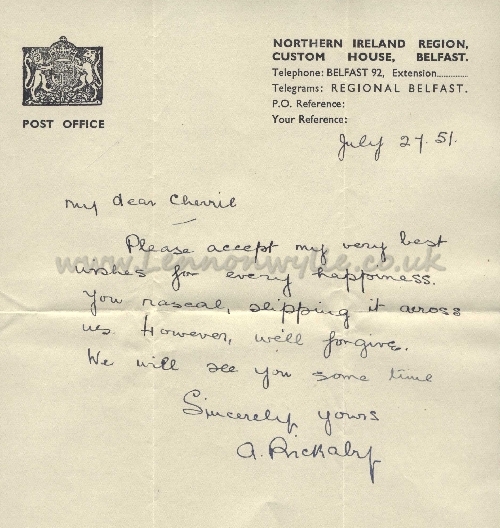 NORTHERN IRELAND REGION,
CUSTOM HOUSE, BELFAST.
Telephone: BELFAST 92, Extension............
Telegrams: REGIONAL BELFAST.
P.O. Reference:
Your Reference:
POST OFFICE
July 27. 51.
My dear Cherrie
Please accept my very best
www.Lennonwylie.co.uk
wishes for every happiness.
You rascal, slipping it across
us. However, we'll forgive.
We will see you some time
Sincerely yours
A. Rickaby